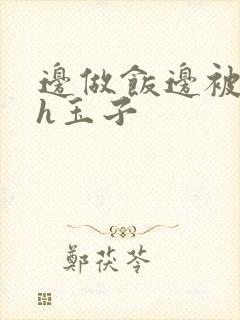 邊做飯邊被
h玉子
鄭茯苓